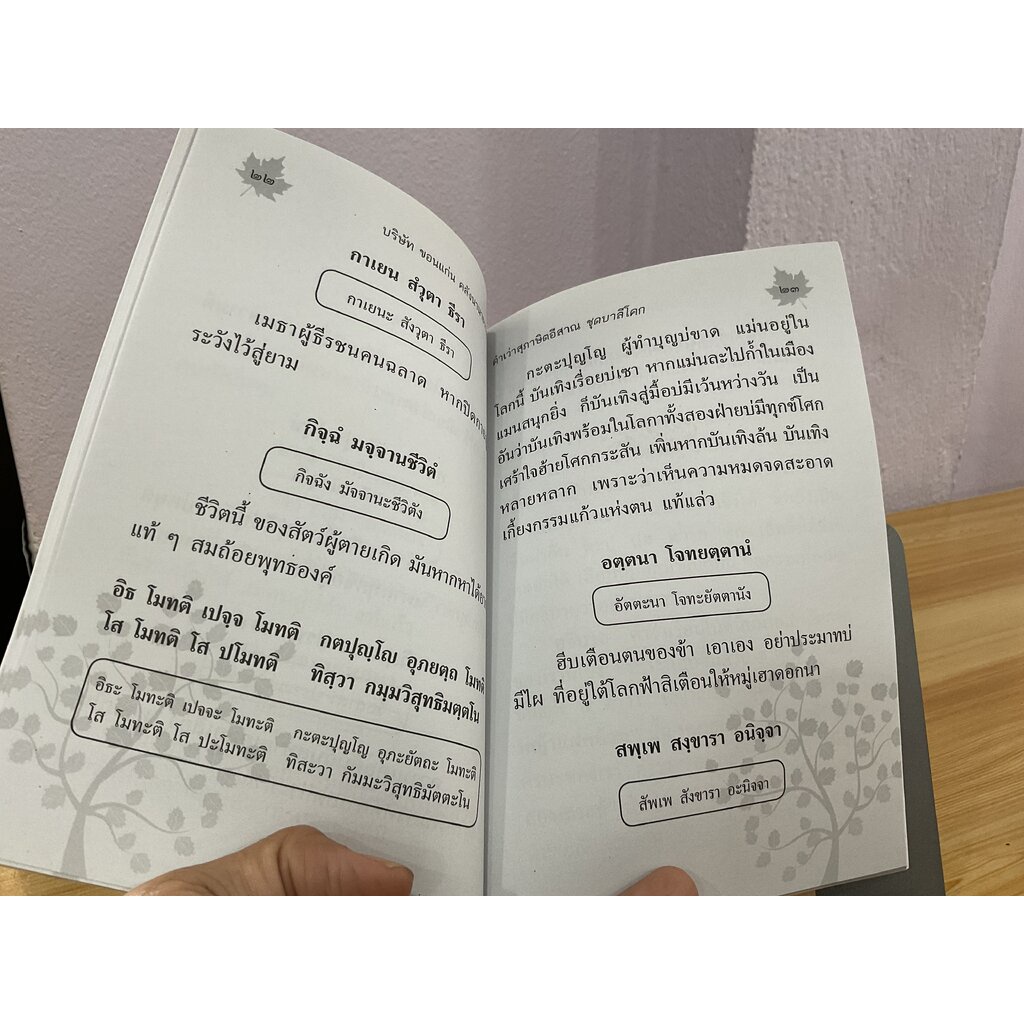 ๒๒
บริษัท ขอนแก่น คลังนานา
กาเยน สํวุตา ธีรา
กาเยนะ สังวุตา ธีรา
เมธาผู้ธีรชนคนฉลาด หากปิดกาย
ระวังไว้สู่ยาม
กิจฺฉํ มจฺจานชีวิตํ
กิจฉัง มัจจานะชีวิตัง
ชีวิตนี้ ของสัตว์ผู้ตายเกิด มันหากหาได้
แท้ ๆ สมถ้อยพุทธองค์
อิธ โมทติ เปจฺจ โมทติ กตปุญฺโญ อุภยตฺถ โมทติ
โส โมทติ โส ปโมทติ ทิสฺวา กมฺมวิสุทธิมตฺตโน
อิธะ โมทะติ เปจจะ โมทะติ กะตะปุญโญ อุภะยัตถะ โมทะติ
โส โมทะติ โส ปะโมทะติ ทิสะวา กัมมะวิสุทธิมัตตะโน
๒๓
คำเว่าสุภาษิตอีสาณ ชุดบาลีโคก
กะตะปุญโญ ผู้ทำบุญบ่ขาด แม่นอยู่ใน
โลกนี้ บันเทิงเรื่อยบ่เซา หากแม่นละไปก้ำในเมือง
แมนสนุกยิ่ง ก็บันเทิงสู่มื้อบ่มีเว้นหว่างวัน เป็น
อันว่าบันเทิงพร้อมในโลกาทั้งสองฝ่ายบ่มีทุกข์โศก
เศร้าใจฮ้ายโศกกระสัน เพิ่นหากบันเทิงล้น บันเทิง
หลายหลาก เพราะว่าเห็นความหมดจดสะอาด
เกี้ยงกรรมแก้วแห่งตน แท้แล่ว
อตฺตนา โจทยตฺตานํ
อัตตะนา โจทะยัตตานัง
ฮีบเตือนตนของข้า เอาเอง อย่าประมาทบ่
มีไผ ที่อยู่ใต้โลกฟ้าสิเตือนให้หมู่เฮาดอกนา
สพฺเพ สงฺขารา อนิจฺจา
สัพเพ สังขารา อะนิจจา